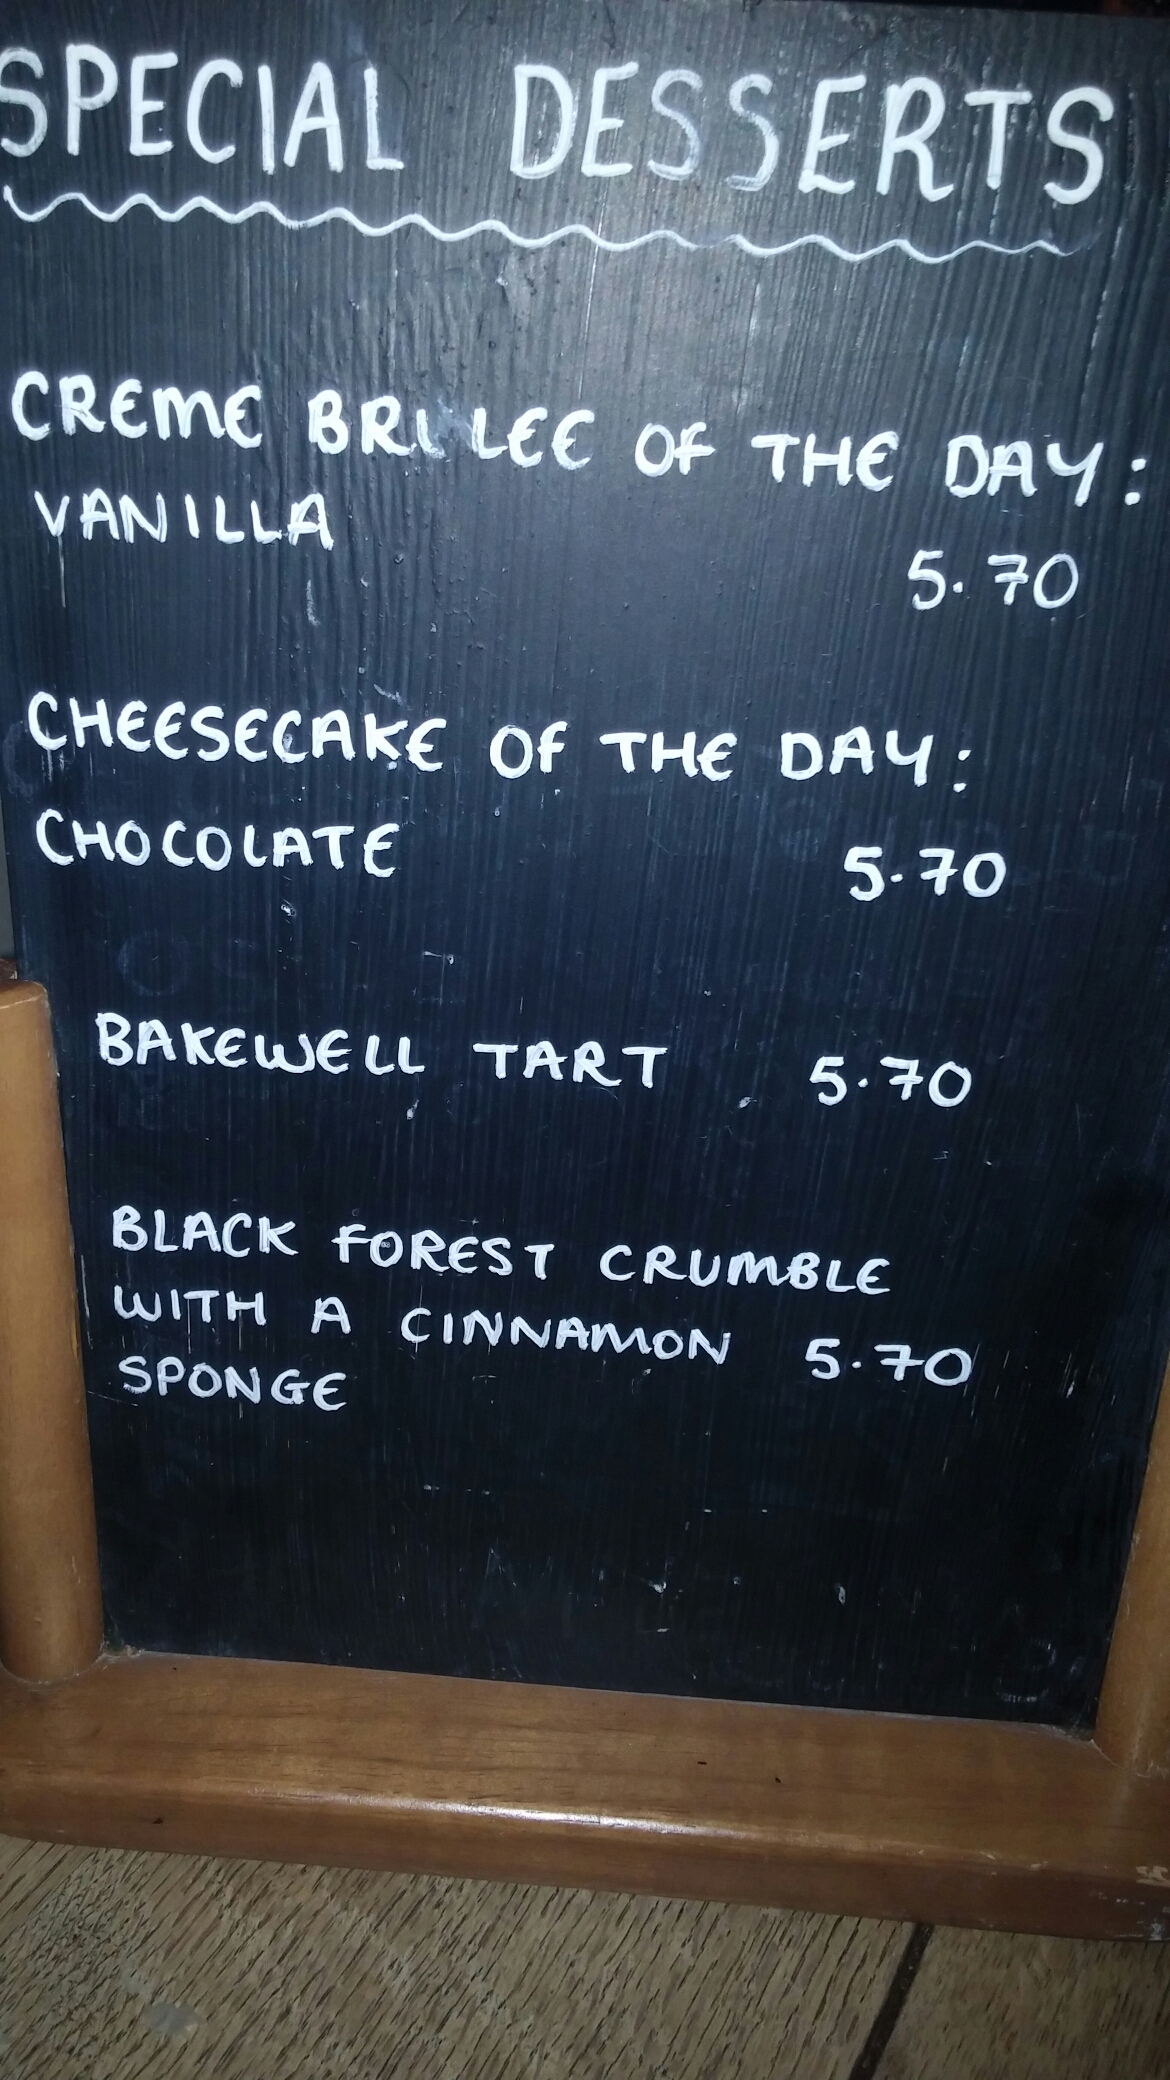 SPECIAL DESSERTS
CREME BRULEE OF THE DAY:
VANILLA
5.70
CHEESECAKE OF THE DAY:
CHOCOLATE 5.70
BAKEWELL TART 5.70
BLACK FOREST CRUMBLE
WITH A CINNAMON 5.70
SPONGE